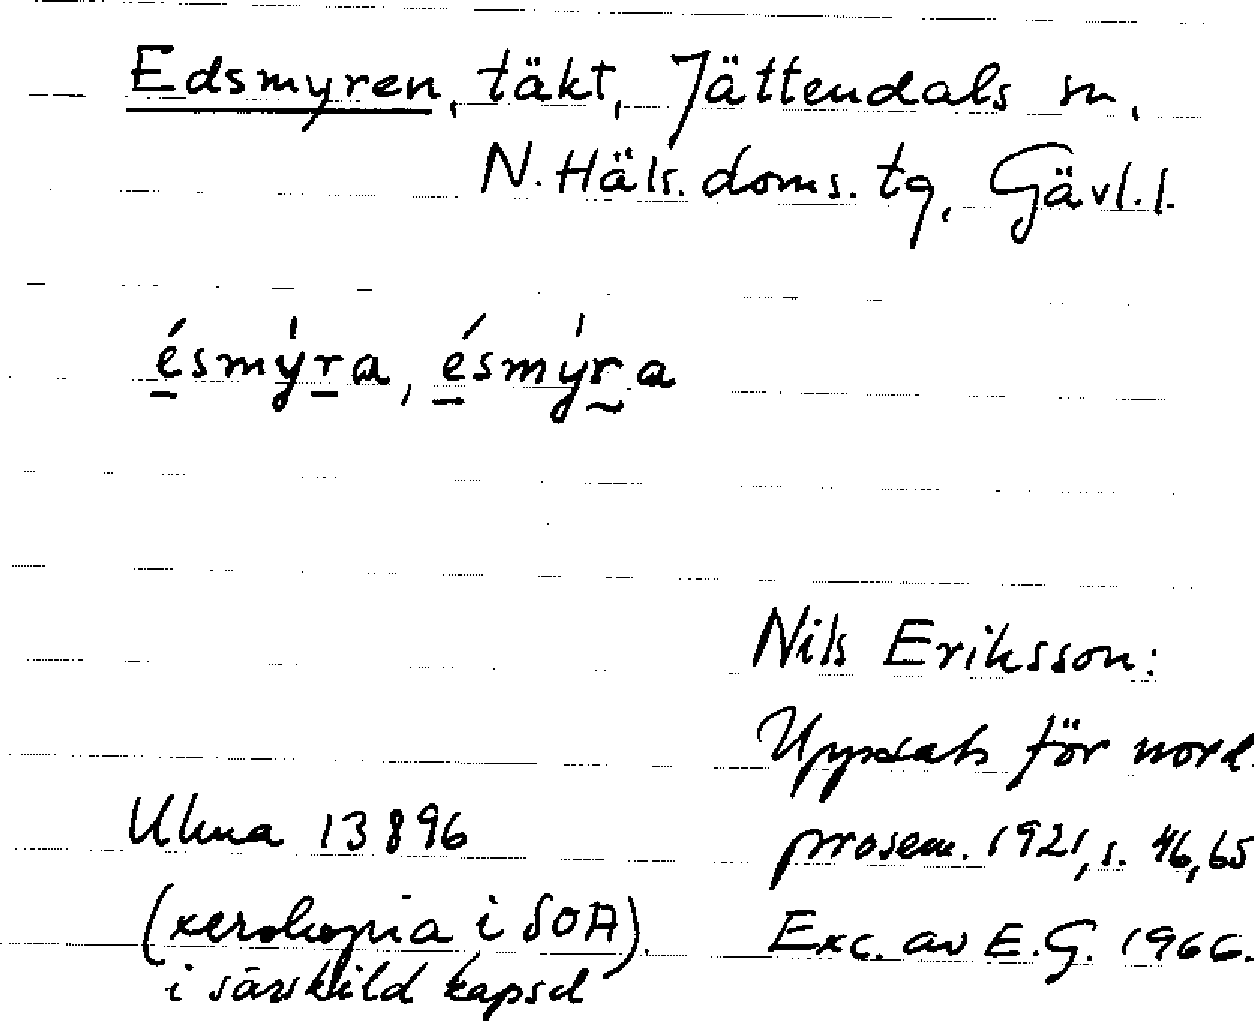 Edsmyren, täkt, Jättendals sn,
N. Häls. doms. tg, Gävl. l.
ésmy̍ra, ésmy̍ra
Nils Eriksson:
Uppsats för nord.
prosem. 1921, s. 46, 65
Ulma 13896
(xerokopia i SOA).
i särskild kapsel
Exc. av E. G. 1966.